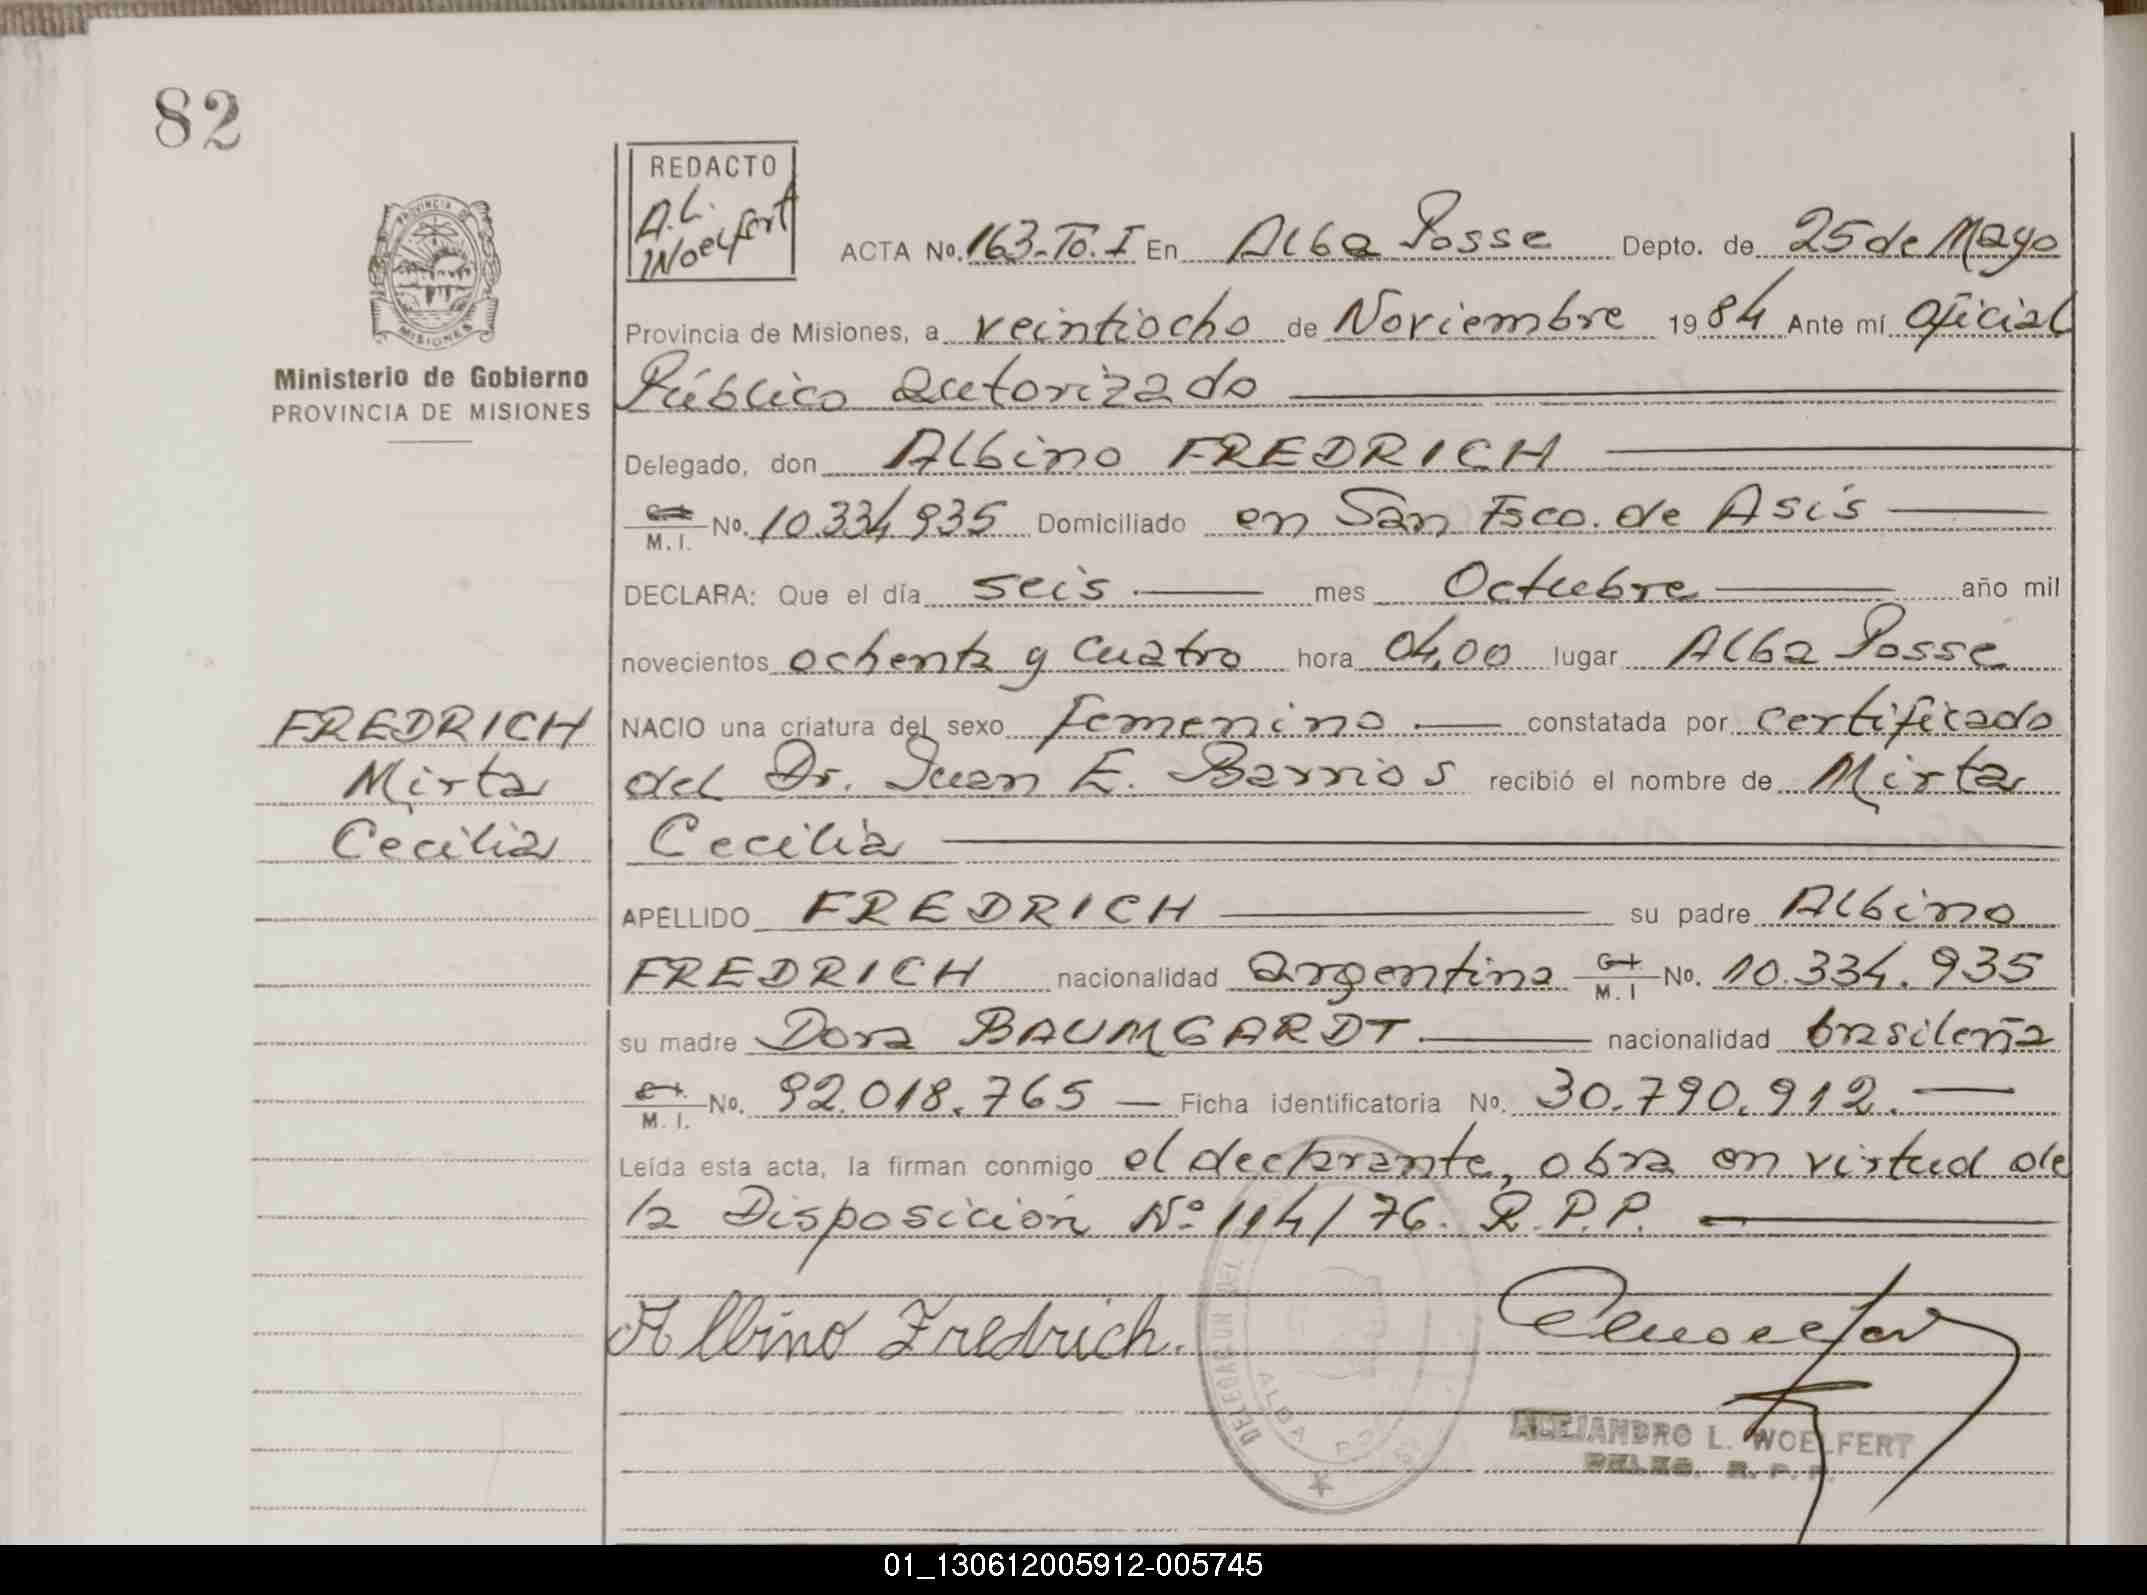 82
REDACTO
A.L.
Woelfert
PROVINCIA DE
MISIONES
Ministerio de Gobierno
PROVINCIA DE MISIONES
ACTA No. 163-To. I En Alba Posse Depto. de 25 de Mayo
Provincia de Misiones, a veintiocho de Noviembre 1984 Ante mí Oficial
Público autorizado
Delegado, don Albino FREDRICH
M. I. No. 10.334.935 Domiciliado en San Fsco. de Asís
DECLARA: Que el día seis mes Octubre año mil
novecientos ochenta y cuatro hora 04,00 lugar Alba Posse
FREDRICH
Mirta
Cecilia
NACIO una criatura del sexo femenino constatada por certificado
del Dr. Juan E. Barrios recibió el nombre de Mirta
Cecilia
APELLIDO FREDRICH su padre Albino
FREDRICH nacionalidad argentina M. I No. 10.334.935
su madre Dora BAUMGARDT nacionalidad brasileña
M. I. No. 92.018.765 — Ficha identificatoria No. 30.790.912.
Leída esta acta, la firman conmigo el declarante, obra en virtud de
la Disposición Nº 114/76. R.P.P.
Albino Fredrich.
ALEJANDRO L. WOELFERT
DELEG. R. P. P.
01_130612005912-005745